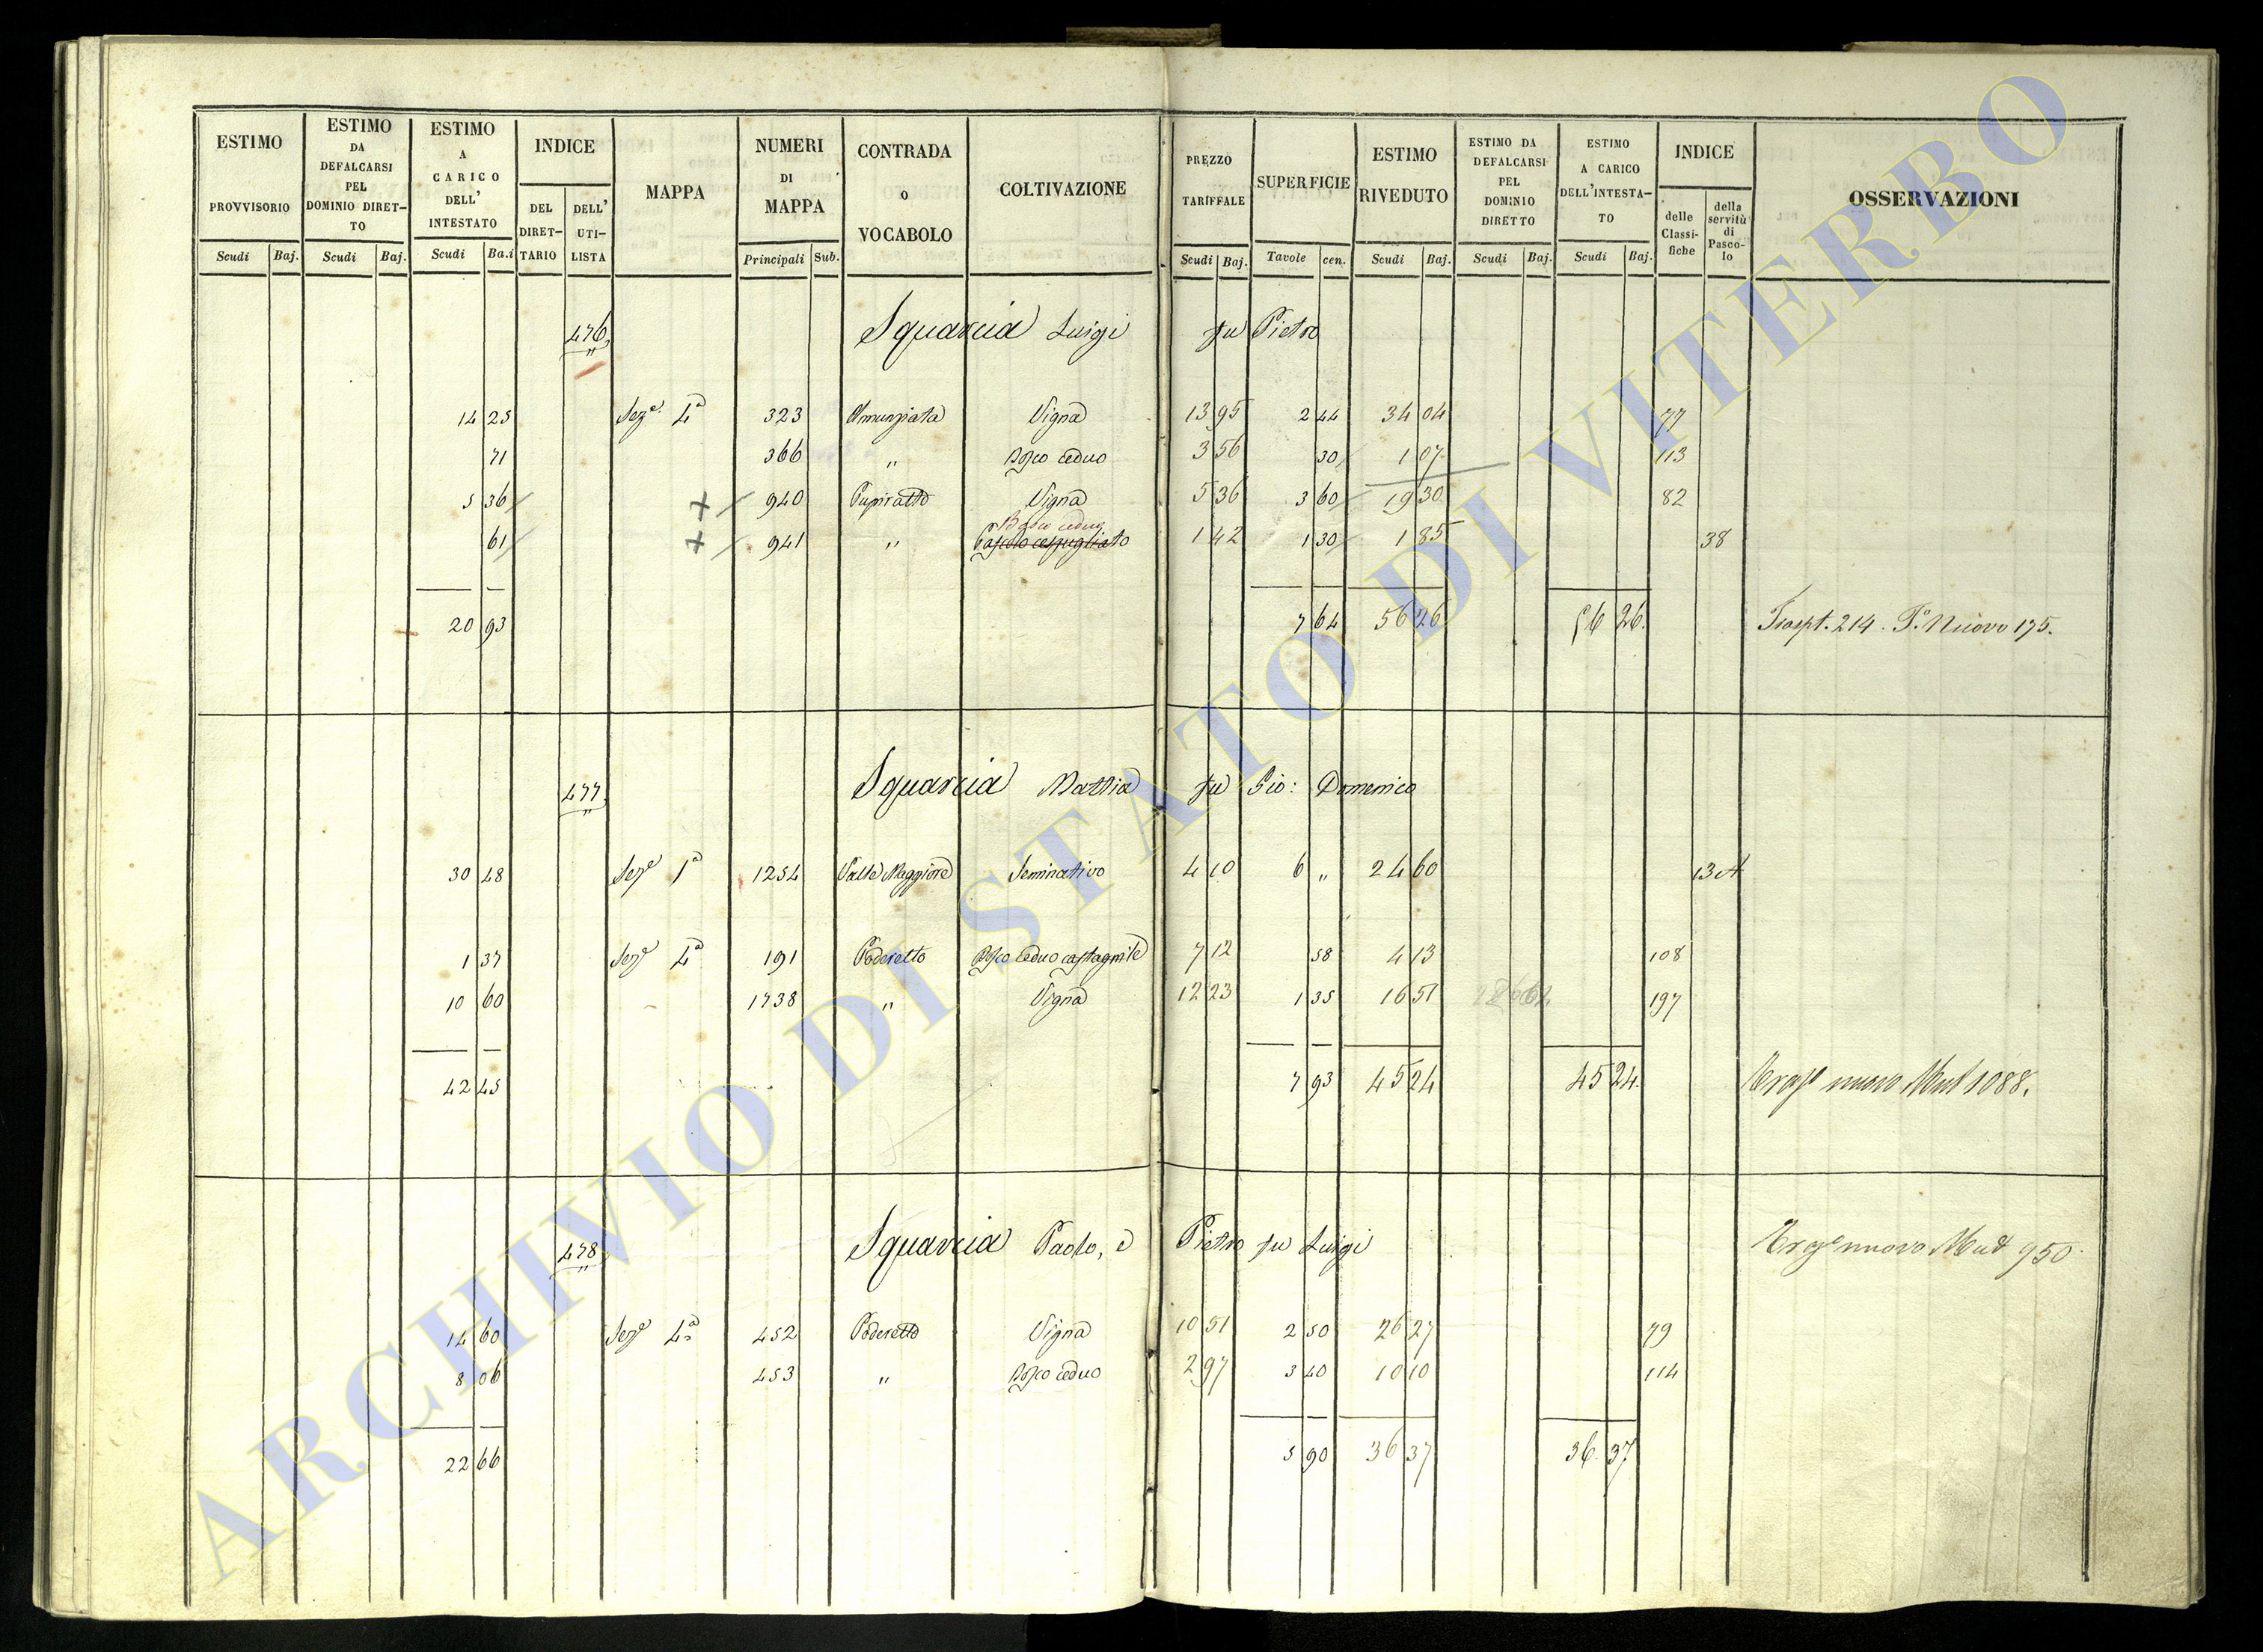 ESTIMO PROVVISORIO
ESTIMO DA DEFALCARSI PEL DOMINIO DIRET–TO
ESTIMO A CARICO DELL' INTESTATO
INDICE
DEL DIRET–TARIO
DELL' UTI–LISTA
MAPPA
NUMERI DI MAPPA
CONTRADA O VOCABOLO
COLTIVAZIONE
PREZZO TARIFFALE
SUPERFICIE
ESTIMO RIVEDUTO
ESTIMO DA DEFALCARSI PEL DOMINIO DIRETTO
ESTIMO A CARICO DELL'INTESTA–TO
INDICE
delle Classi-fiche
della servitù di Pasco-lo
OSSERVAZIONI
Scudi Baj. Scudi Baj. Scudi Ba.i Principali Sub. Scudi Baj. Tavole cen. Scudi Baj. Scudi Baj. Scudi Baj.
476 Squarcia Luigi fu Pietro
14 25 Seze. 4a 323 Annunziata Vigna 13 95 2 44 34 04 77
71 366 " Bosco ceduo 3 56 30 1 07 113
5 36 940 Vigna 5 36 3 60 19 30 82
Bosco ceduo
61 941 " Pascolo cespugliato 1 42 1 30 1 85 38
20 93 7 64 56 26 56 26. Traspt. 214. P.o Nuovo 175.
477 Squarcia Mattia fu Gio: Domenico
30 48 Seze 1a 1254 Valle Maggiore Seminativo 4 10 6 " 24 60 13 A
1 37 Seze 4a 191 Poderetto Bosco ceduo castagnile 7 12 58 4 13 108
10 60 1738 " Vigna 12 23 1 35 16 51 197
42 45 7 93 45 24 45 24. nuovo Mut 1088.
478 Squarcia Paolo, e Pietro fu Luigi nuovo Mut 950
14 60 Seze 4a 452 Poderetto Vigna 10 51 2 50 26 27 79
8 06 453 " Bosco ceduo 2 97 3 40 10 10 114
22 66 5 90 36 37 36 37
ARCHIVIO DI STATO DI VITERBO